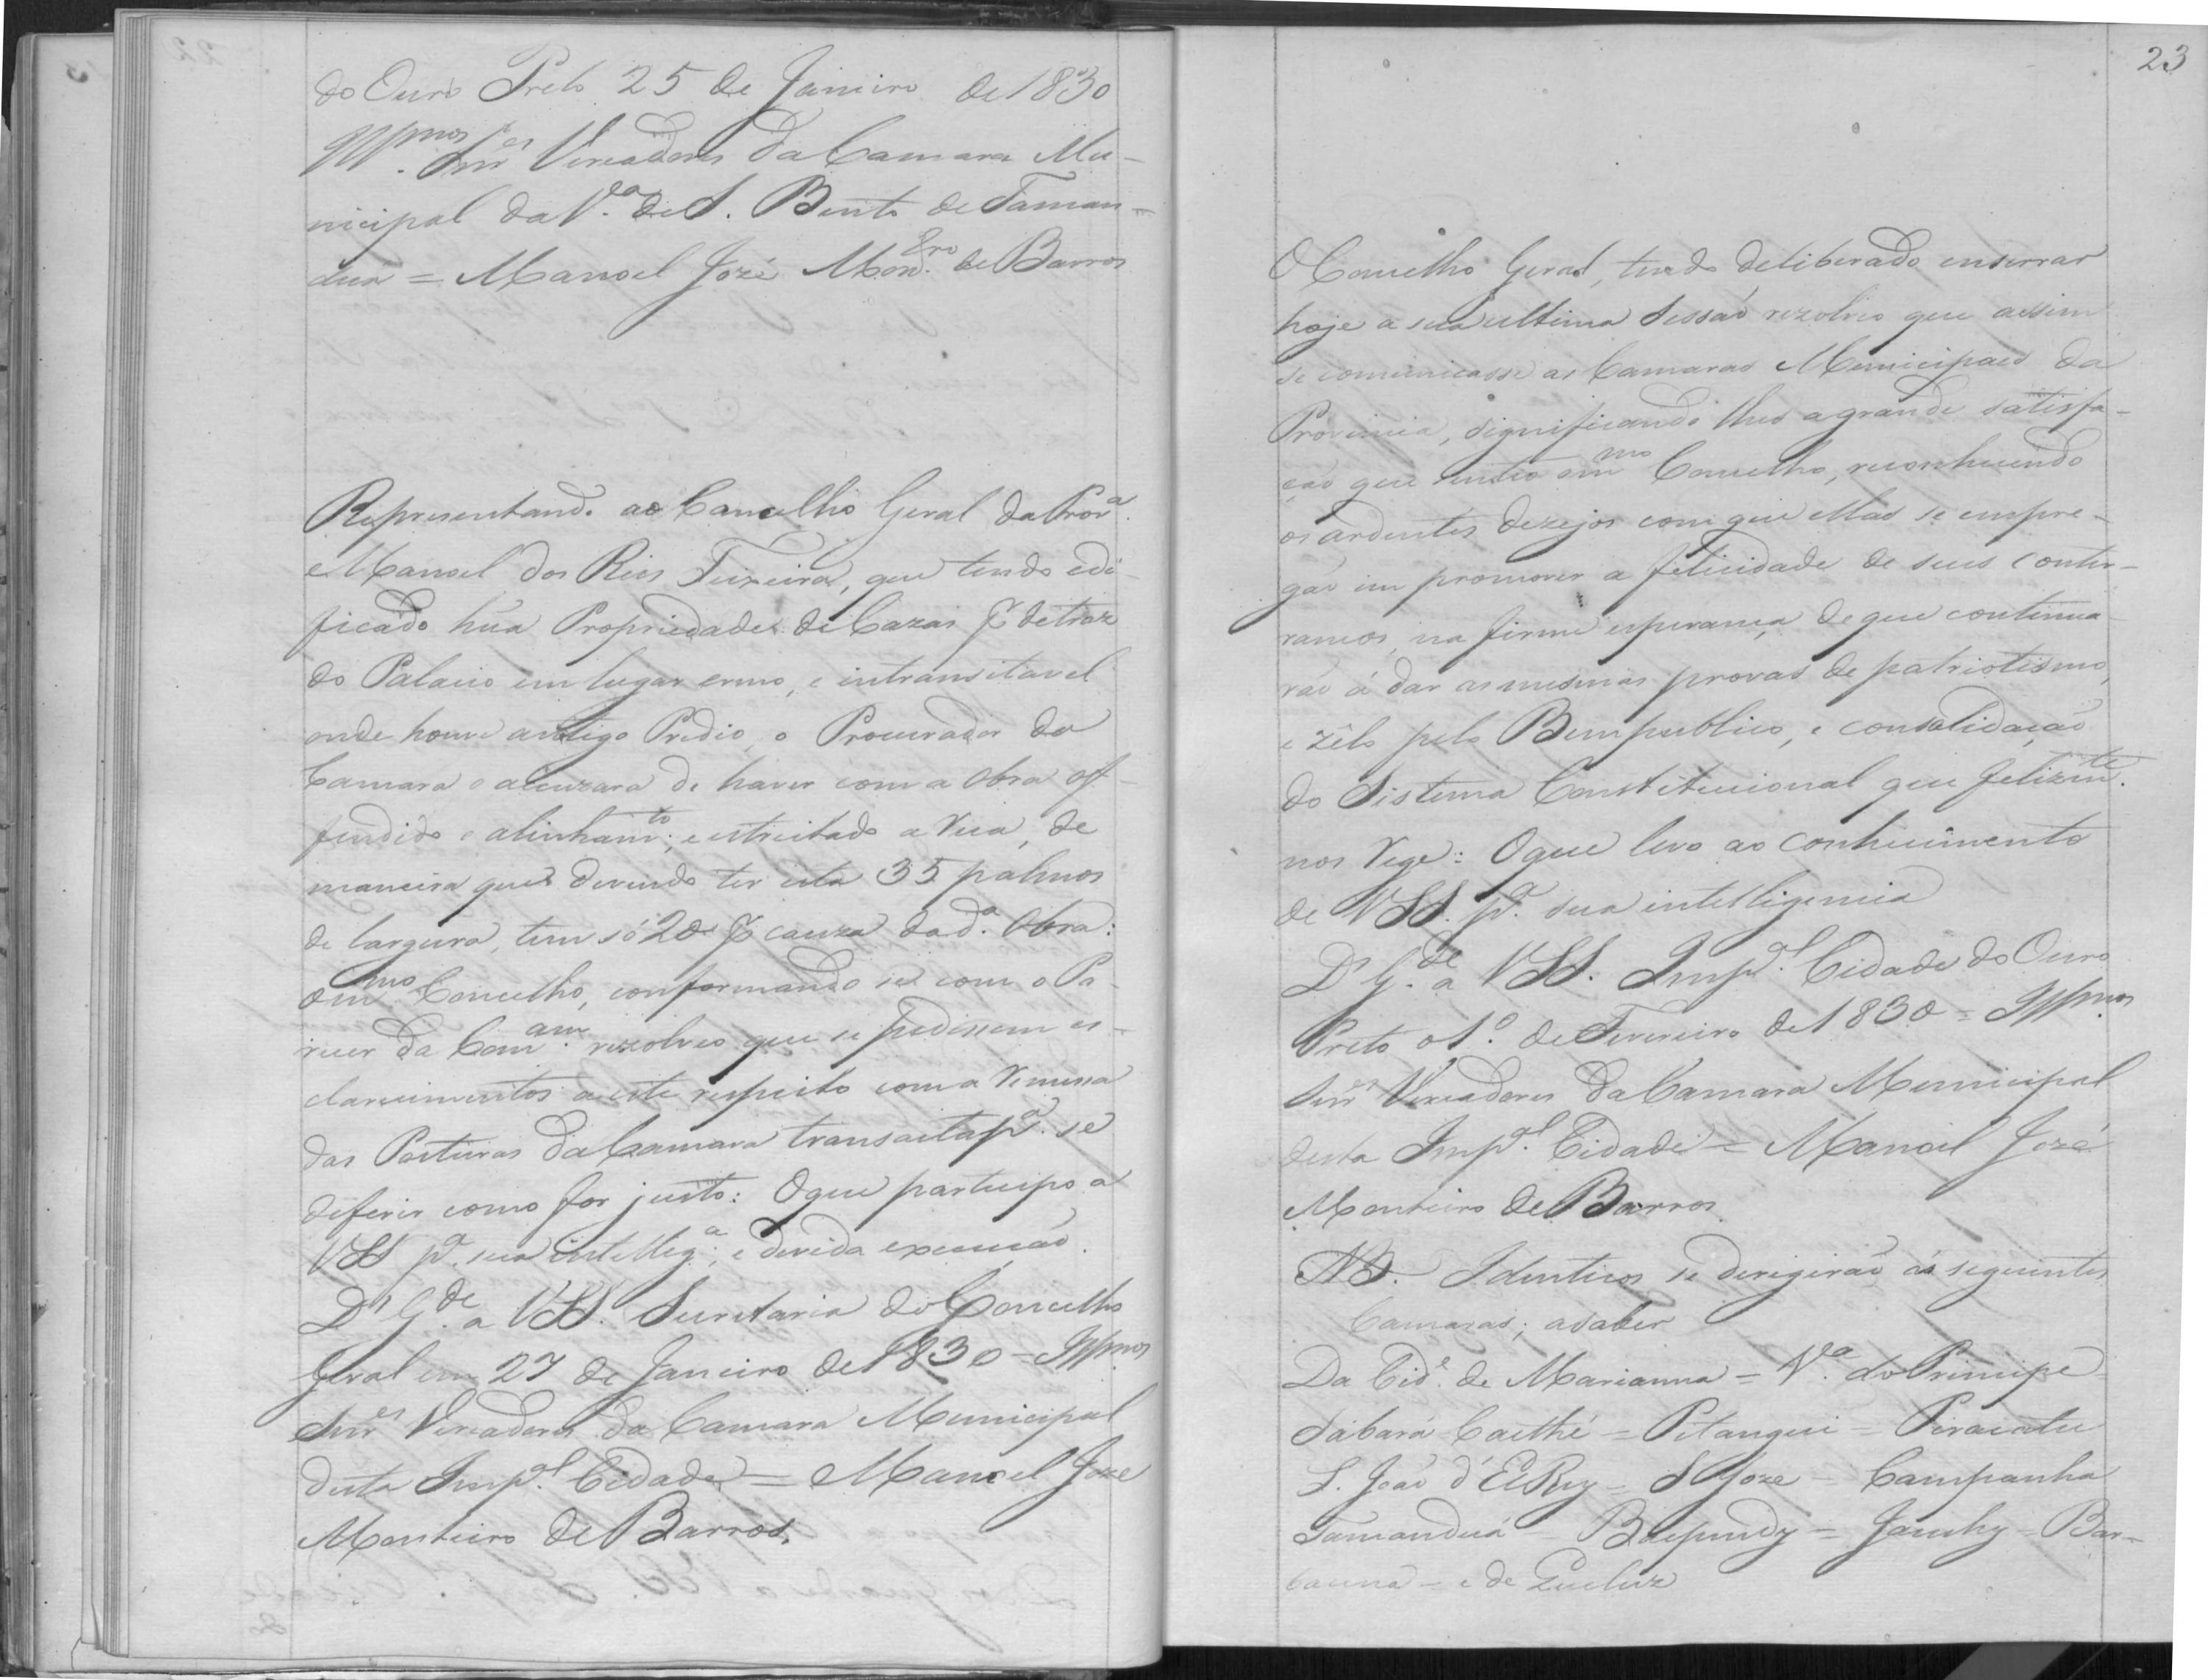 do Ouro Preto 25 de Janeiro de 1830
Illmos. Snres Vereadores da Camara Mu-
nicipal da Va. de S. Bento de Taman-
duá = Manoel Jozé Montro. de Barros
Representando ao Concelho Geral da Prova.
Manoel dos Reis Teixeira, que tendo edi-
ficado hũa Propriedade de Cazas pr detraz
do Palacio em lugar ermo, e intransitavel
onde houve antigo Predio, o Procurador da
Camara o acuzara de haver com a obra of-
fendido o alinhamto., e estreitado a rua, de
maneira que devendo ter esta 35 palmos
de largura, tem só 20 pr cauza da da. Obra:
o mmo Concelho, conformando se com o Pa-
recer da Comam. rezolveo que se pedissem es-
clarecimentos a este respeito com a remessa
das Posturas da Camara transacta pa. se
deferir como for justo: O que participo a
VSS pa. sua intellига., e devida execução.
Ds Gde. a VSS. Secretaria do Concelho
Geral em 27 de Janeiro de 1830 = Illmos.
Snres Vereadores da Camara Municipal
desta Impal. Cidade = Manoel Joze
Monteiro de Barros.
23
O Concelho Geral, tendo deliberado enserrar
hoje a sua ultima Sessaõ rezolveo que assim
se comunicasse as Camaras Municipaes da
Provincia, significando lhes a grande satisfa-
çaõ que sentio o mmo Concelho, reconhecendo
os ardentes dezejos com que ellas se empre-
gaõ em promover a felicidade de seus conter-
raneos, na firme esperança de que continua
raõ á dar as mesmas provas de patriotismo,
e zêlo pelo Bem publico, e consolidaçaõ
do Sistema Constitucional que felizmte.
nos rege: O que levo ao conhecimento
de VSS. pa. sua intelligencia
Ds Gde. a VSS. Impal. Cidade do Ouro
Preto o 1º. de Fevereiro de 1830 = Illmos.
Snres Vereadores da Camara Municipal
desta Impal. Cidade = Manoel Jozé
Monteiro de Barros.
NB. Identicos se derigiraõ ás seguintes
Camaras; a saber
Da Cide. de Marianna = Va. do Principe
Sabará = Caethé = Pitangui = Piracatu
S. Joaõ d'ElRey = S Joze = Campanha
Tamanduá = Baependy = Jacuhy = Bar-
bacena = e de Queluz